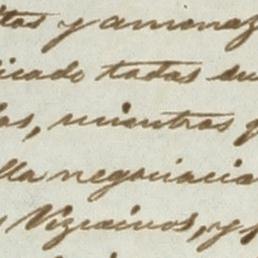 itos y amenaz
icado todas su
os, mientras q
lla negociacio
s Vizcainos, y s